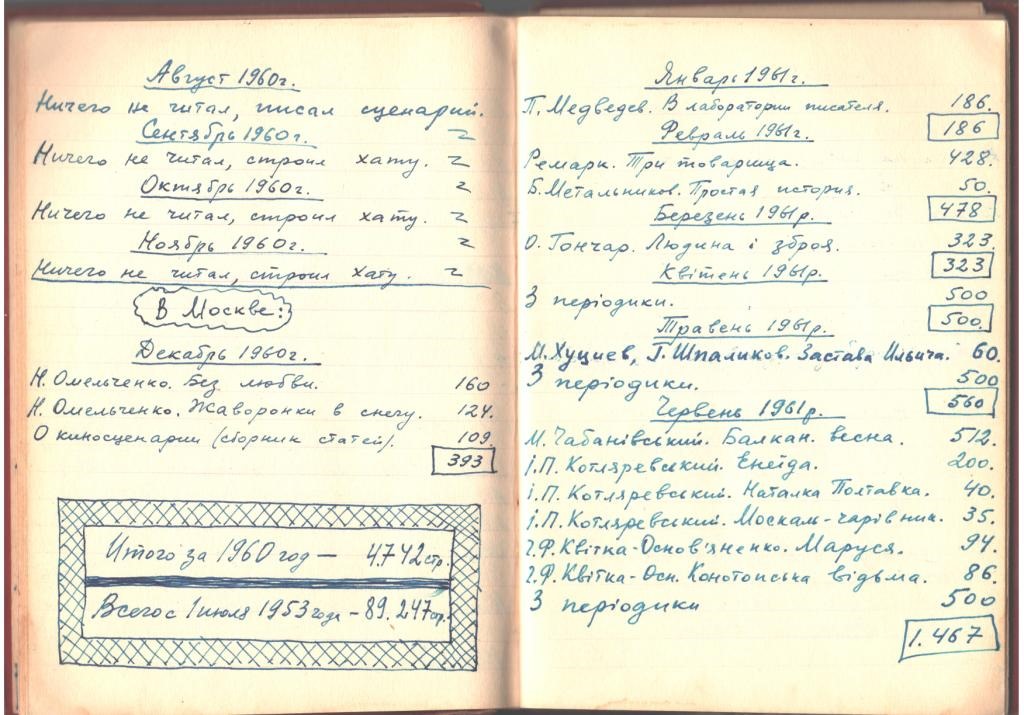 Август 1960г.
Ничего не читал, писал сценарий.
Сентябрь 1960г.
Ничего не читал, строил хату.
Октябрь 1960г.
Ничего не читал, строил хату.
Ноябрь 1960г.
Ничего не читал, строил хату.
В Москве:
Декабрь 1960г.
Н. Омельченко. Без любви. 160
Н. Омельченко. Жаворонки в снегу. 124.
О киносценарии (сборник статей). 109.
393
Итого за 1960 год — 4742 стр.
Всего с 1 июля 1953 года – 89.247 стр.
Январь 1961г.
П. Медведев. В лаборатории писателя. 186.
186
Февраль 1961г.
Ремарк. Три товарища. 428.
Б. Метальников. Простая история. 50.
478
Березень 1961р.
О. Гончар. Людина і зброя. 323.
323
Квітень 1961р.
З періодики. 500
500.
Травень 1961р.
М. Хуциев, Г. Шпаликов. Застава Ильича. 60.
З періодики. 500
560
Червень 1961р.
М. Чабанівський. Балкан. весна. 512.
І.П. Котляревський. Енеїда. 200.
І.П. Котляревський. Наталка Полтавка. 40.
І.П. Котляревський. Москаль-чарівник. 35.
Г.Ф. Квітка-Основ'яненко. Маруся. 94.
Г.Ф. Квітка-Осн. Конотопська відьма. 86.
З періодики 500
1.467